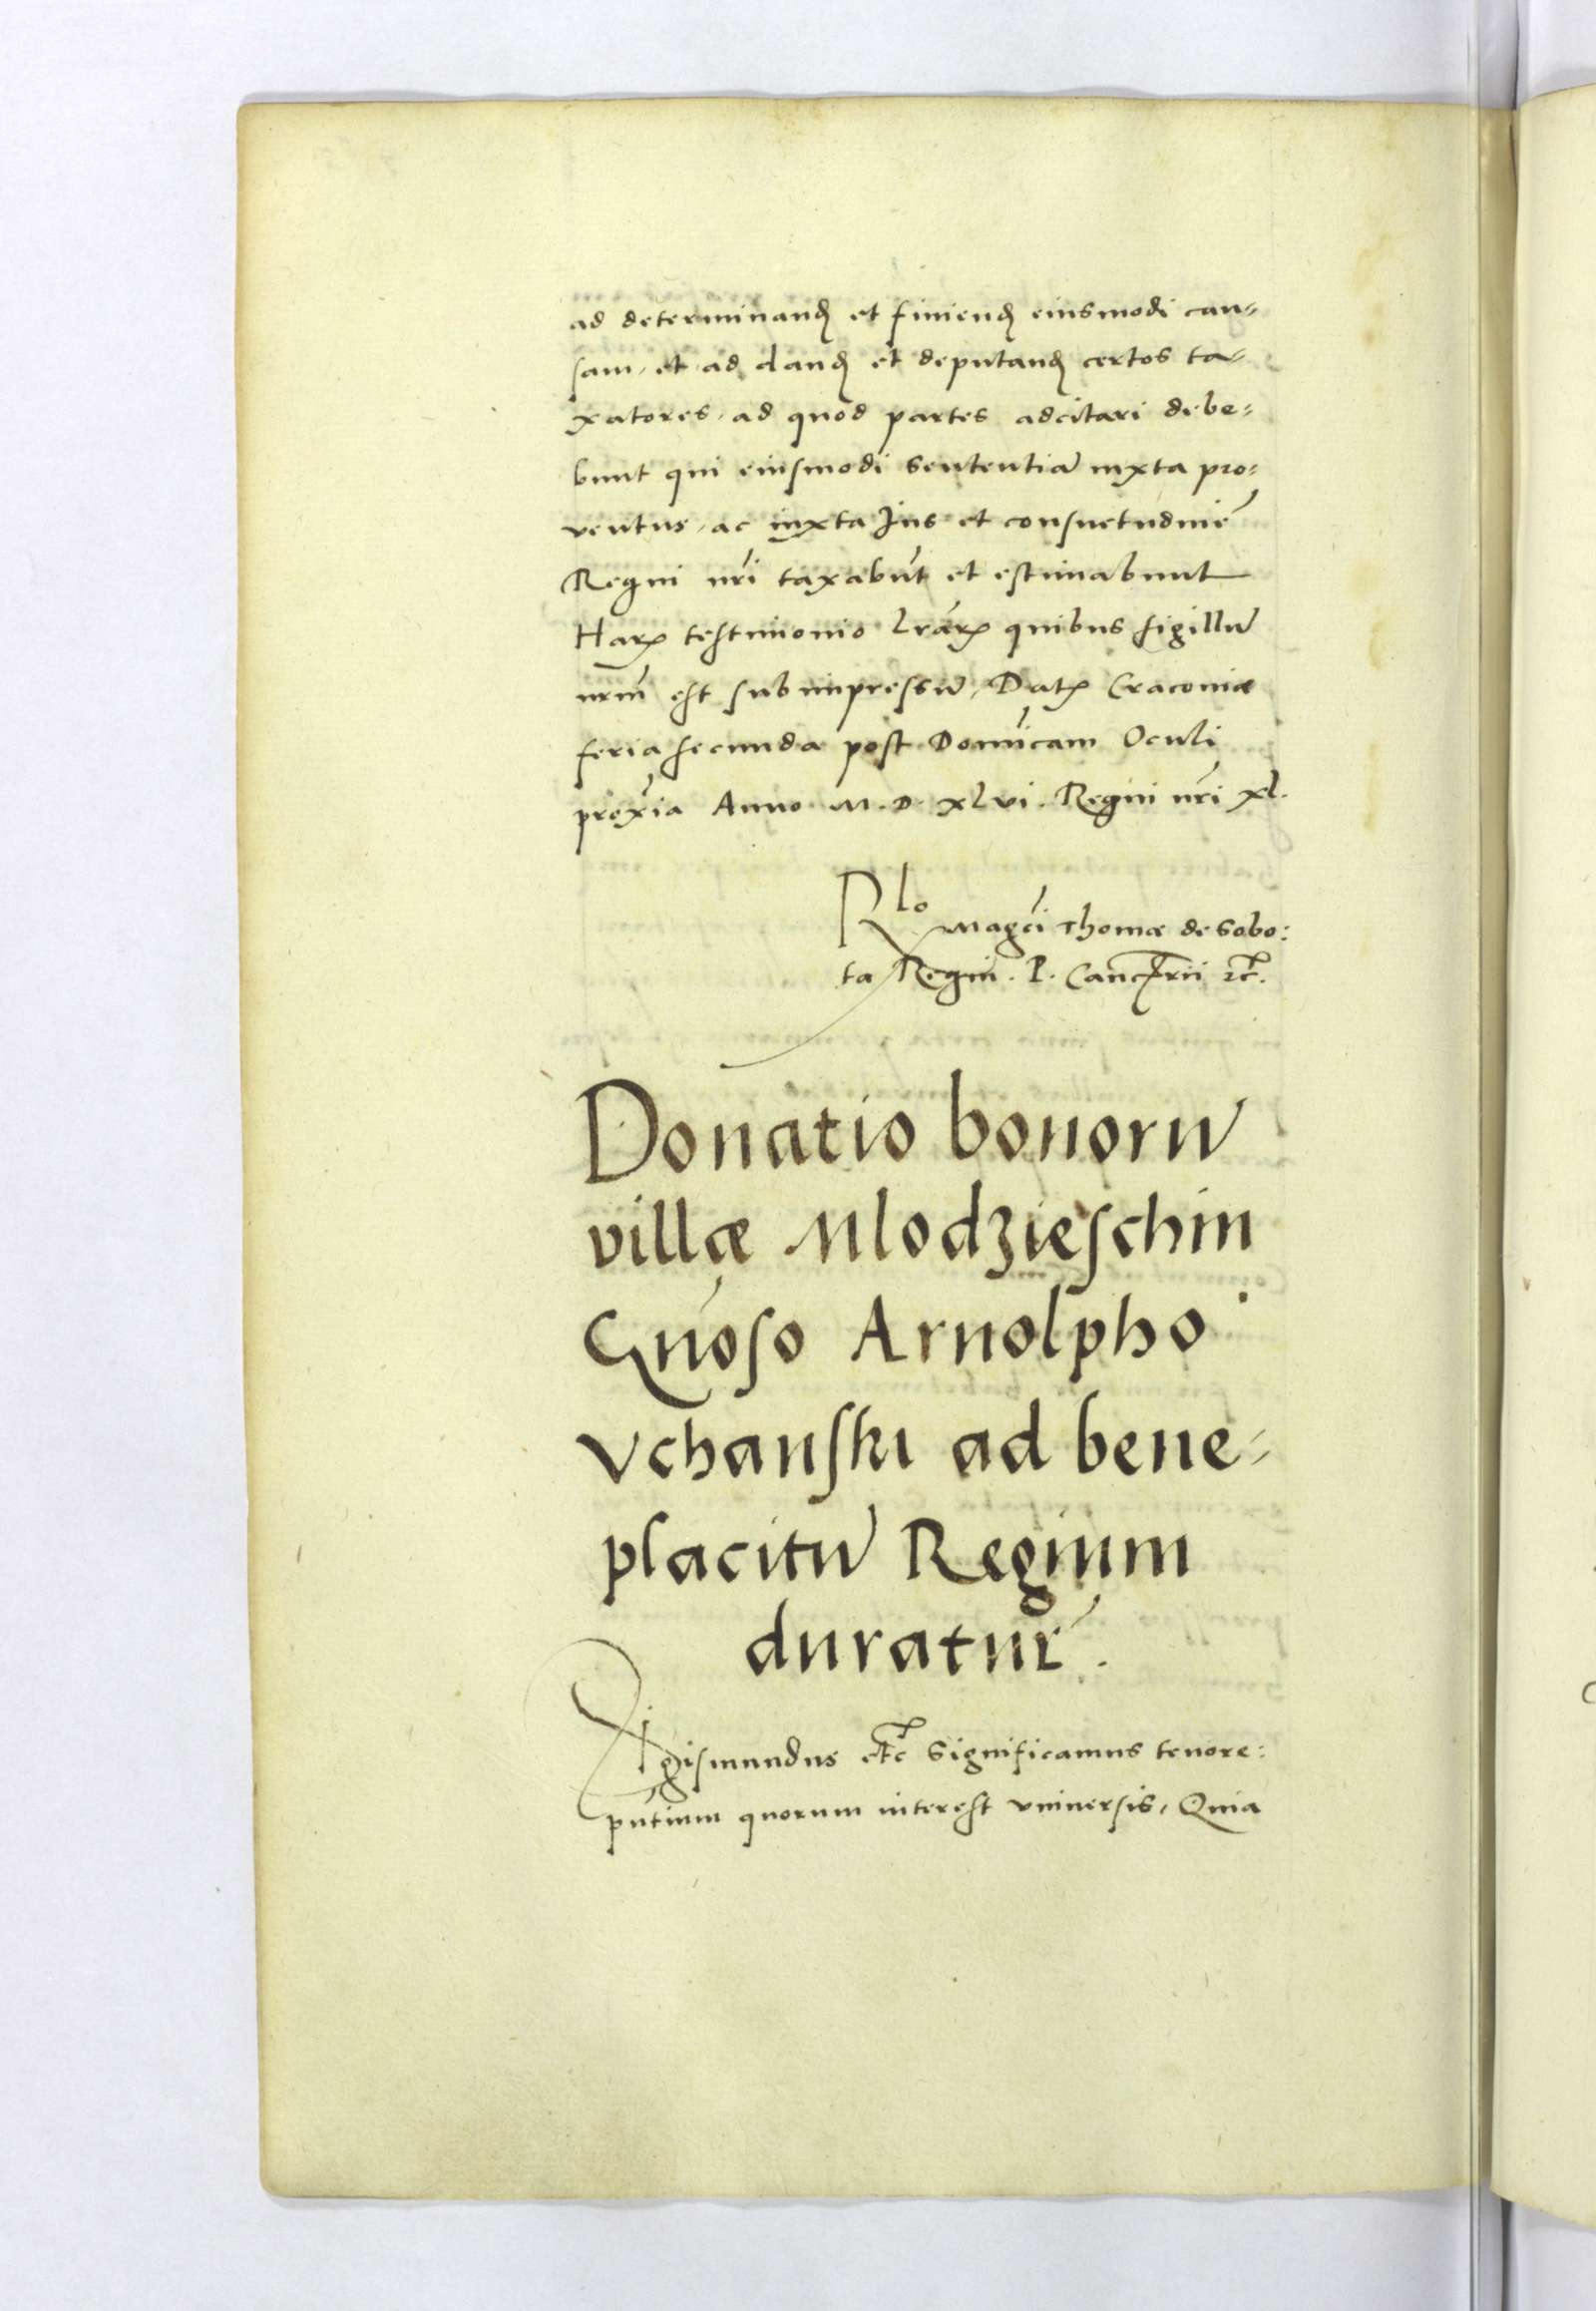 ad determinand et finiend eiusmodi cau-
sam, et ad dand et deputand certos ta-
xatores, ad quod partes adcitari debe-
bunt qui eiusmodi sententiā iuxta pro-
ventus, ac iuxta Ius et consuetudinē
Regni nri taxabūt et estimabunt
Harꝝ testimonio lrarꝝ quibus sigillū
nrm est subimpressū, Datꝝ Cracoviæ
feria secunda post Dominicam Oculi
proxīa Anno M.D.XLVI. Regni nri XL.
Rlo
Magci Thomæ de Sobo-
ta Regni. P. Cancrii etc.
Donatio bonorū
villæ Mlodzieschin
Gnoso Arnolpho
Vchanski ad bene-
placitū Regium
duratur.
Sigismundus etc Significamus tenore
pntium quorum interest vniversis, Quia